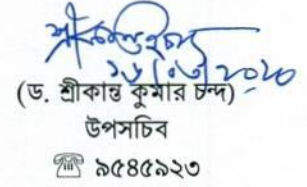 ১৬/০৩/২০২০
(ড. শ্রীকান্ত কুমার চন্দ)
উপসচিব
☎ ৯৫৪৫৯২৩